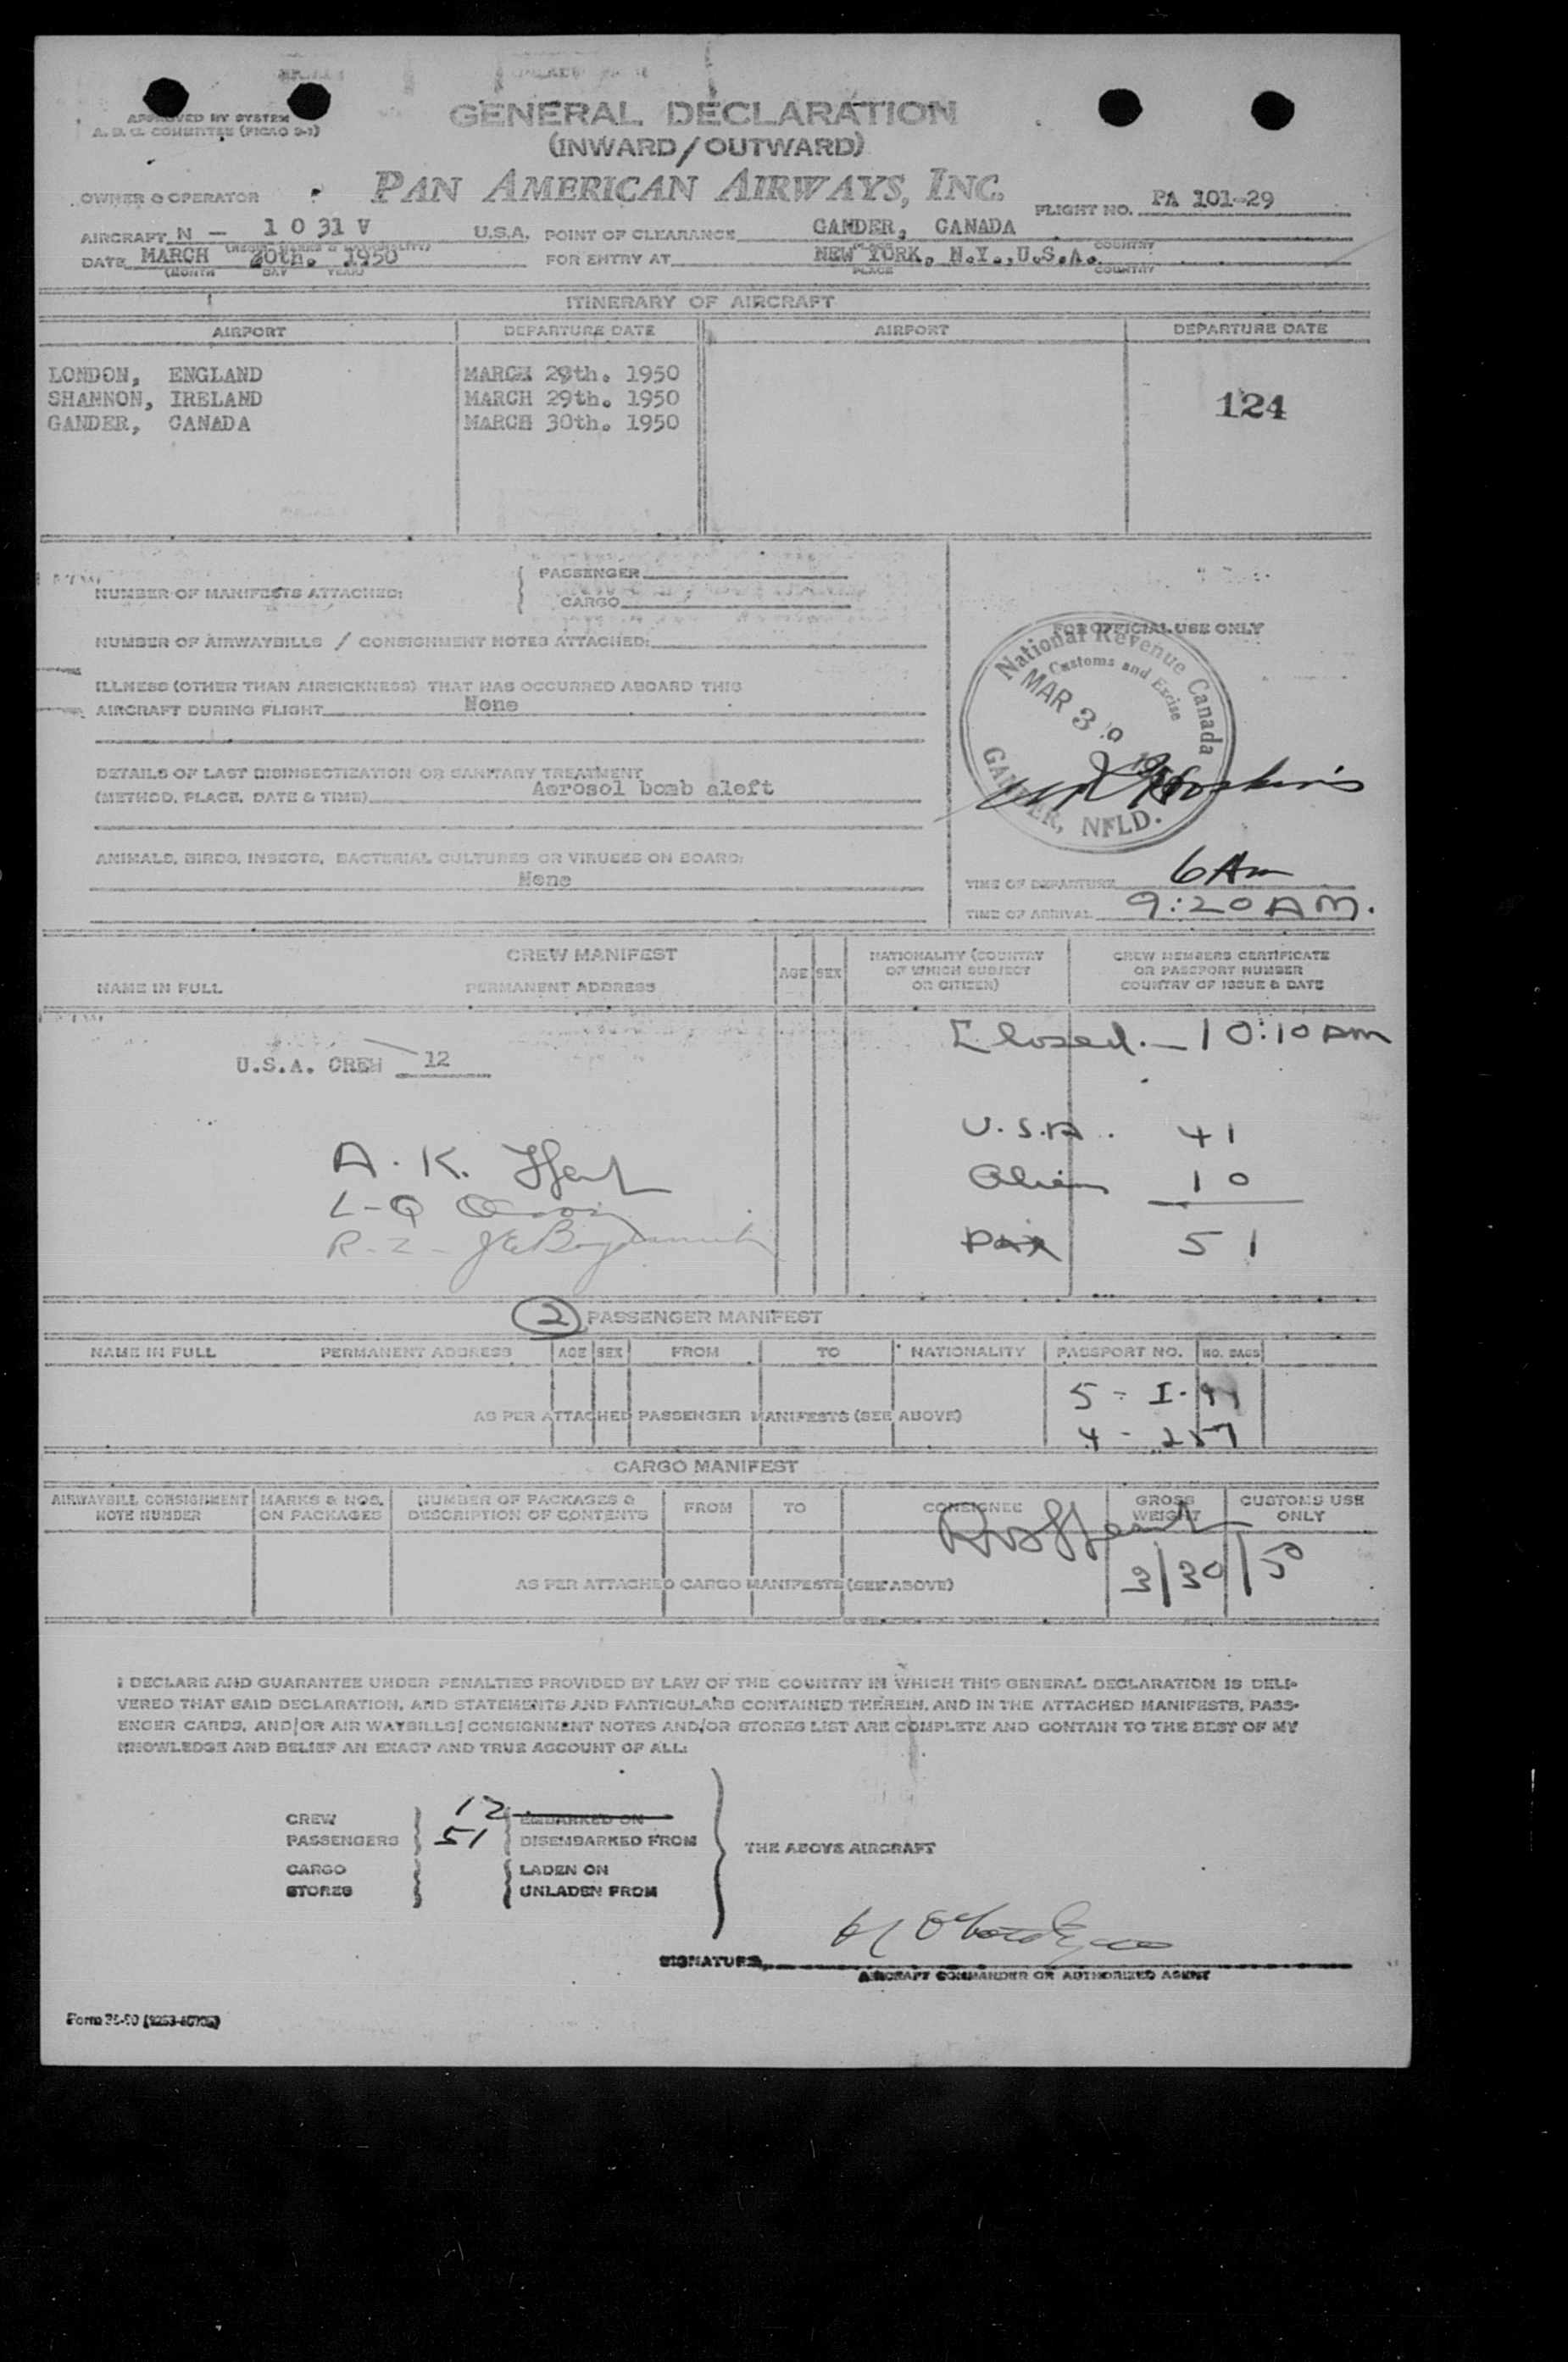 APPROVED BY SYSTEM
A. D. C. COMMITTEE (PICAO 9-1)
GENERAL DECLARATION
(INWARD/OUTWARD)
OWNER & OPERATOR PAN AMERICAN AIRWAYS, INC. FLIGHT NO. PA 101-29
AIRCRAFT N - 1031V U.S.A. POINT OF CLEARANCE GANDER, CANADA
PLACE COUNTRY
DATE MARCH 30th. 1950 FOR ENTRY AT NEW YORK, N.Y., U.S.A.
(MONTH DAY YEAR) PLACE COUNTRY
ITINERARY OF AIRCRAFT
AIRPORT DEPARTURE DATE AIRPORT DEPARTURE DATE
LONDON, ENGLAND MARCH 29th. 1950
SHANNON, IRELAND MARCH 29th. 1950 124
GANDER, CANADA MARCH 30th. 1950
NUMBER OF MANIFESTS ATTACHED: PASSENGER
CARGO
NUMBER OF AIRWAYBILLS / CONSIGNMENT NOTES ATTACHED:
FOR OFFICIAL USE ONLY
National Revenue Canada
Customs and Excise
MAR 30
GANDER, NFLD.
ILLNESS (OTHER THAN AIRSICKNESS) THAT HAS OCCURRED ABOARD THIS
AIRCRAFT DURING FLIGHT None
DETAILS OF LAST DISINSECTIZATION OR SANITARY TREATMENT
(METHOD, PLACE, DATE & TIME) Aerosol bomb aloft
ANIMALS, BIRDS, INSECTS, BACTERIAL CULTURES OR VIRUSES ON BOARD:
None
TIME OF DEPARTURE 6 Am
TIME OF ARRIVAL 9:20 AM.
CREW MANIFEST
NAME IN FULL PERMANENT ADDRESS AGE SEX NATIONALITY (COUNTRY OF WHICH SUBJECT OR CITIZEN) CREW MEMBERS CERTIFICATE OR PASSPORT NUMBER COUNTRY OF ISSUE & DATE
Closed. - 10:10 AM
U.S.A. CREW 12
U.S.A. 41
A. K.
Alien 10
L-Q
R-2-
Pax 51
2 PASSENGER MANIFEST
NAME IN FULL PERMANENT ADDRESS AGE SEX FROM TO NATIONALITY PASSPORT NO. NO. BAGS
5 - I-
AS PER ATTACHED PASSENGER MANIFESTS (SEE ABOVE)
4 - 257
CARGO MANIFEST
AIRWAYBILL CONSIGNMENT NOTE NUMBER MARKS & NOS. ON PACKAGES NUMBER OF PACKAGES & DESCRIPTION OF CONTENTS FROM TO CONSIGNEE GROSS WEIGHT CUSTOMS USE ONLY
AS PER ATTACHED CARGO MANIFESTS (SEE ABOVE) 3/30/50
I DECLARE AND GUARANTEE UNDER PENALTIES PROVIDED BY LAW OF THE COUNTRY IN WHICH THIS GENERAL DECLARATION IS DELI-
VERED THAT SAID DECLARATION, AND STATEMENTS AND PARTICULARS CONTAINED THEREIN, AND IN THE ATTACHED MANIFESTS, PASS-
ENGER CARDS, AND/OR AIR WAYBILLS/CONSIGNMENT NOTES AND/OR STORES LIST ARE COMPLETE AND CONTAIN TO THE BEST OF MY
KNOWLEDGE AND BELIEF AN EXACT AND TRUE ACCOUNT OF ALL:
CREW 12 EMBARKED ON
PASSENGERS 51 DISEMBARKED FROM
THE ABOVE AIRCRAFT
CARGO LADEN ON
STORES UNLADEN FROM
SIGNATURE
AIRCRAFT COMMANDER OR AUTHORIZED AGENT